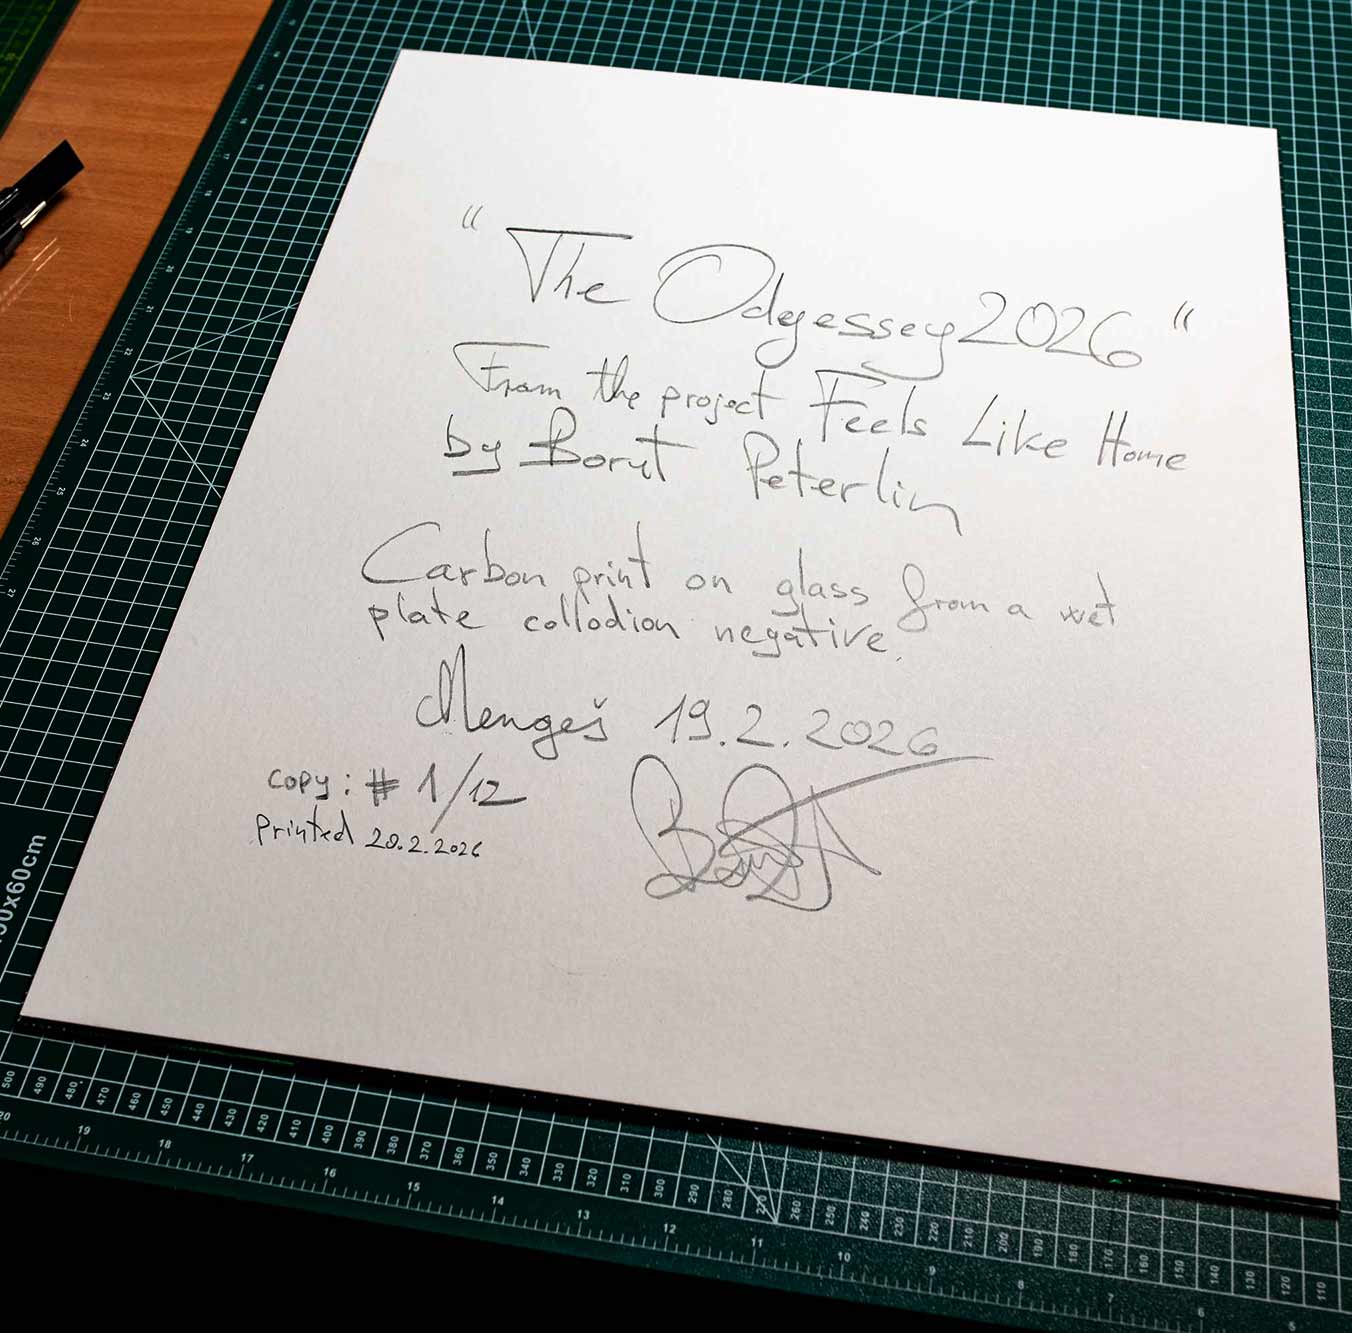 "The Odyessey 2026"
From the project Feels Like Home
by Borut Peterlin
Carbon print on glass from a wet
plate collodion negative.
Mengeš 19.2.2026
copy: # 1/12
Printed 20.2.2026
50x60cm
500 490 480 470 460 450 440 430 420 410 400 390 380 370 360 350 340 330 320 310 300 290 280 270 260 250 240 230 220 210 200 190 180 170 160 150 140 130 120 110
20 19 18 17 16 15 14 13 12 11 10 9 8 7 6 5